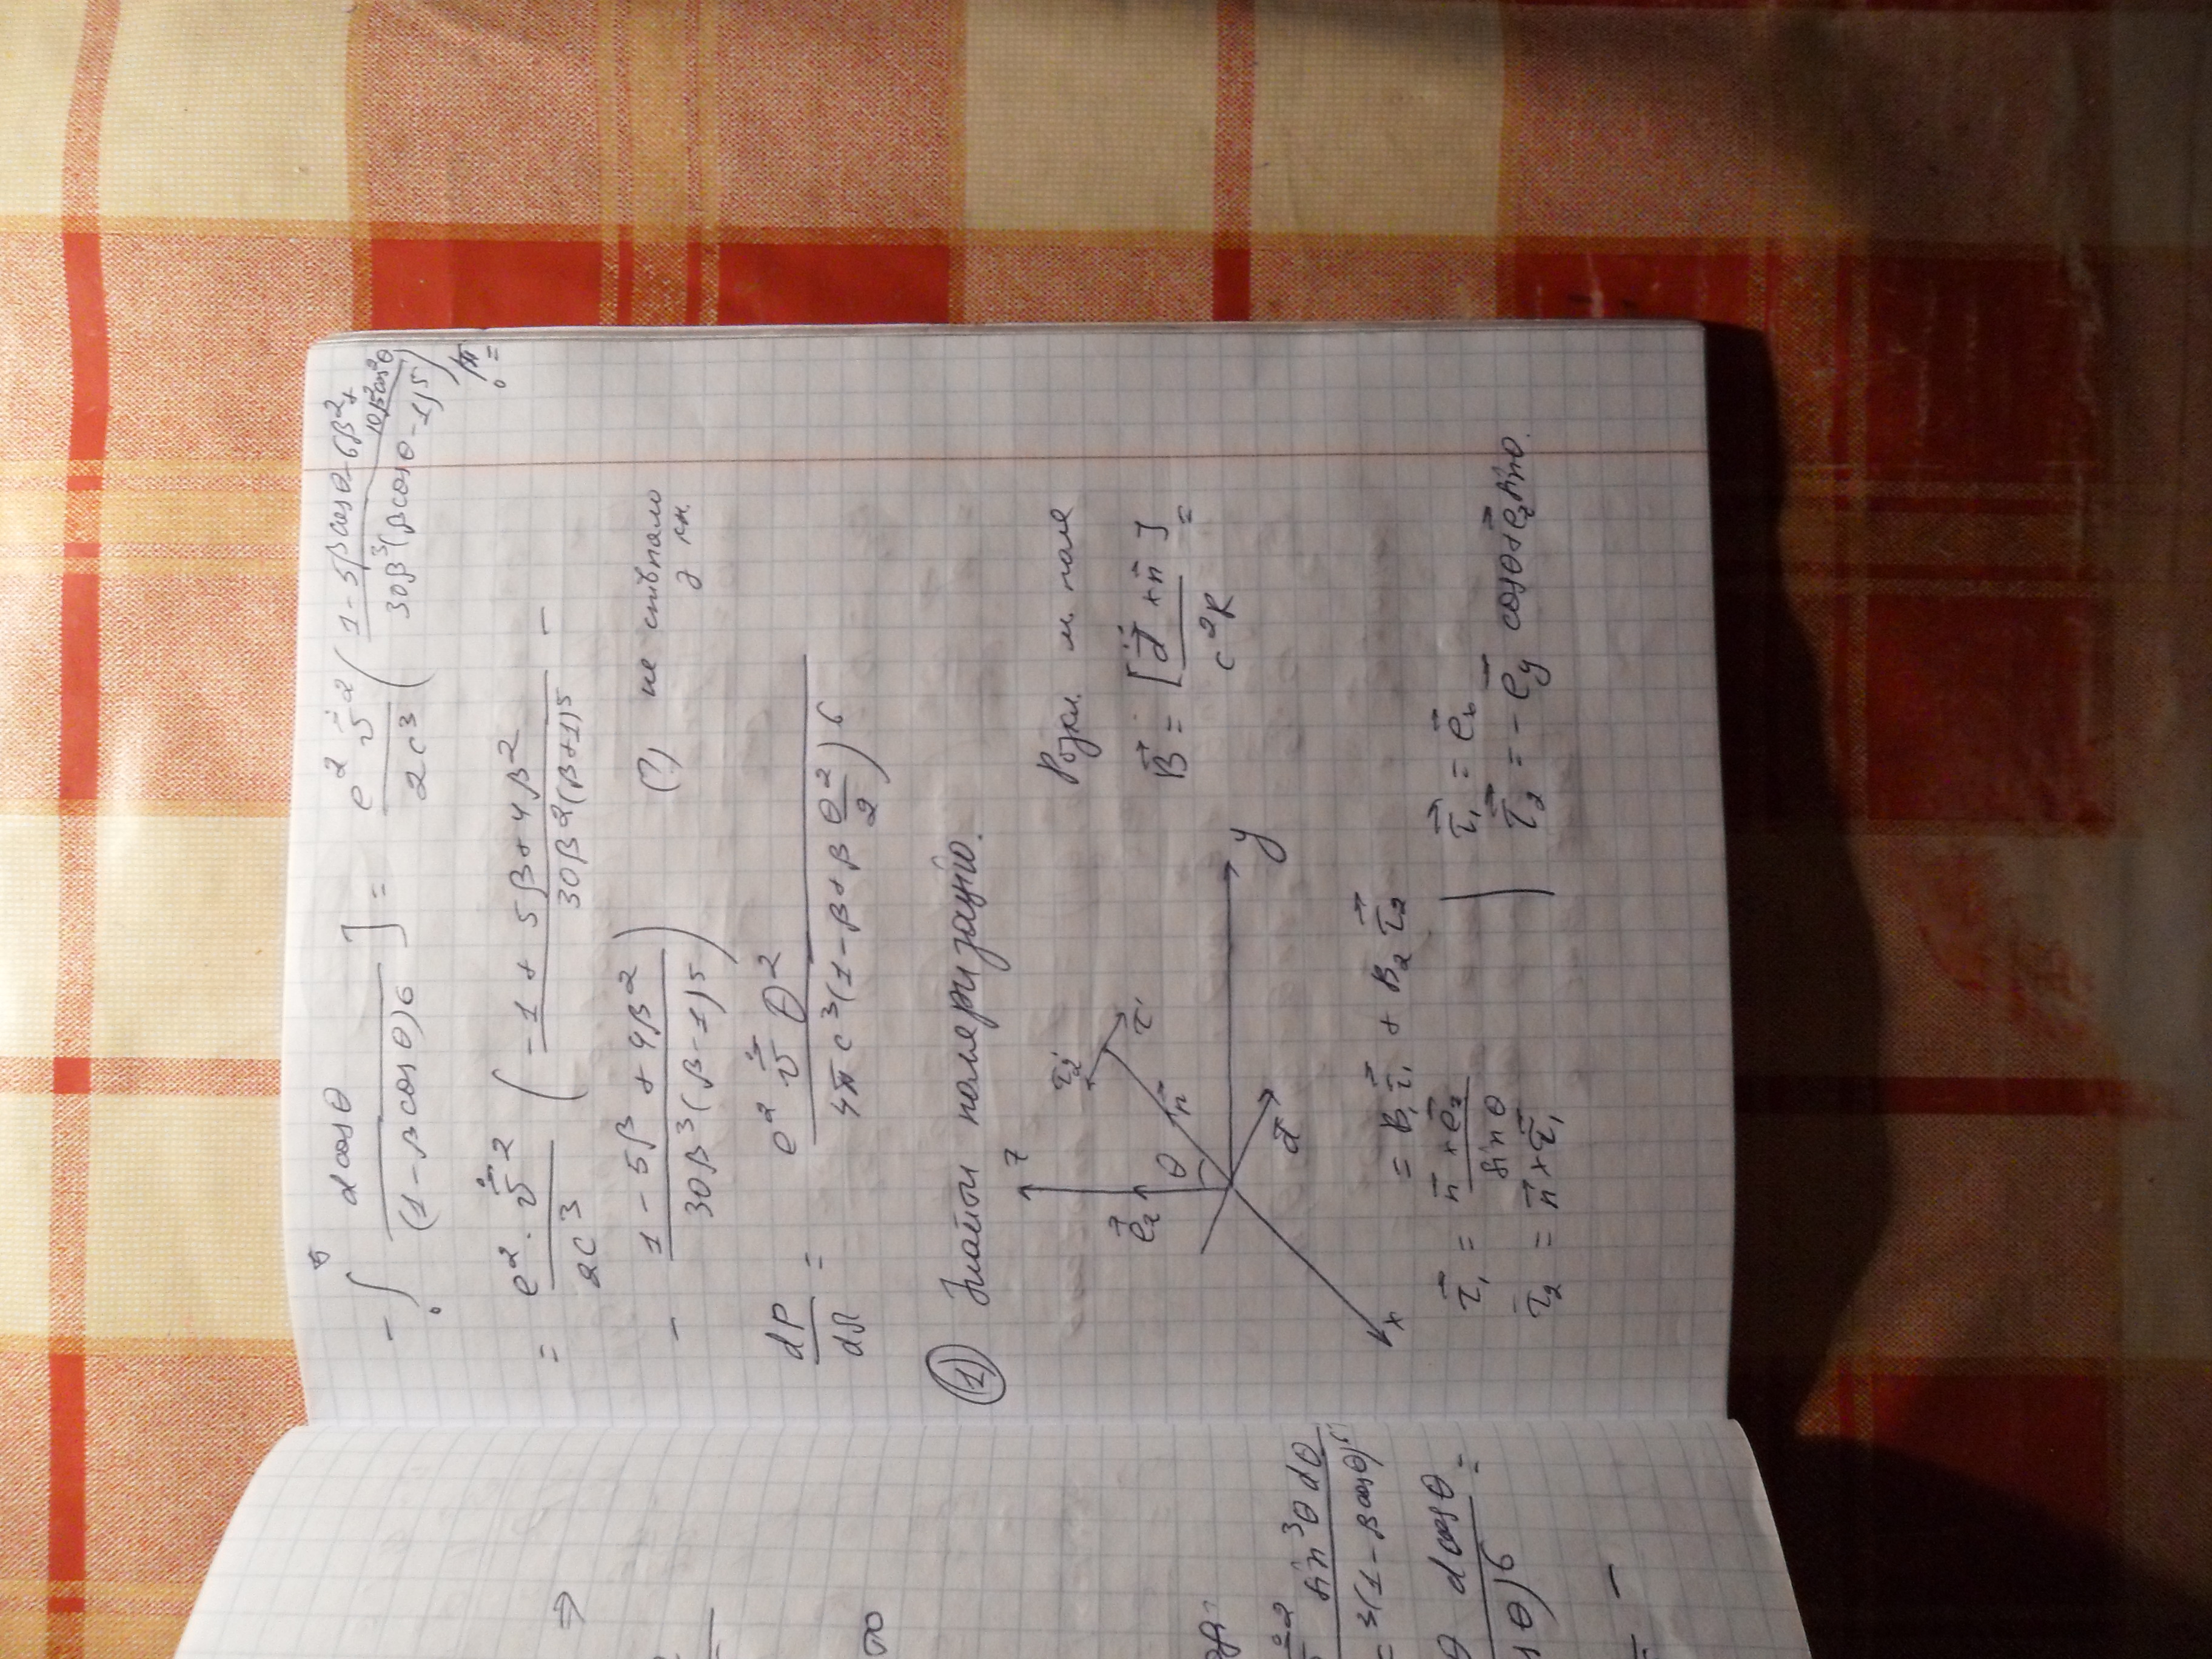 - ∫₀ d cosθ / (1-β cosθ)⁶ ] = e² v̇² / 2c³ ( 1-5β cosθ-6β²+10β²cos²θ / 30β³(β cosθ-1)⁵ ) |₀^π =
= e²·v̇² / 2c³ ( -1+5β+4β² / 30β²(β+1)⁵ -
- 1-5β+4β² / 30β³(β-1)⁵ ) (?) не співпало з
dP/dΩ = e² v̇² θ² / 4πc³(1-β+β θ²/2)⁶
① Знайти поляризацію.
z
τ₂
τ₁
e_z
θ
n
d
y
x
Розкл. м. поля
B = [d̈ × n] / c²R =
= B₁τ₁ + B₂τ₂
τ₁ = n×e_z / sinθ
τ₂ = n×τ₁
τ₁ = e_x
τ₂ = -e_y cosθ+e_z sinθ.
⇒
sin³θ dθ
c³(1-β cosθ)
d cosθ =
θ)⁶
-